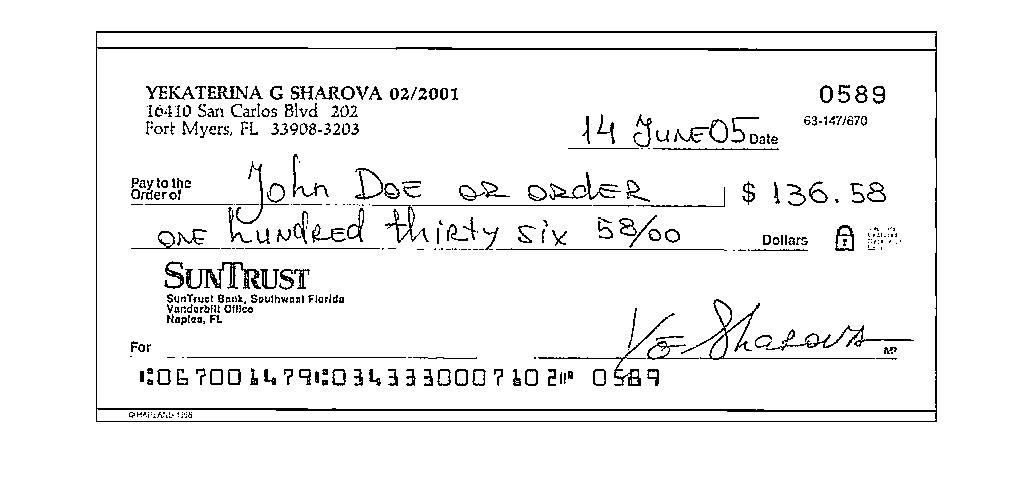 YEKATERINA G SHAROVA 02/2001
16410 San Carlos Blvd 202
Fort Myers, FL 33908-3203
0589
63-147/670
14 JUNE 05 Date
Pay to the Order of John DOE OR ORDER $ 136.58
ONE hUNDRED thiRty six 58/00 Dollars
SUNTRUST
SunTrust Bank, Southwest Florida
Vanderbilt Office
Naples, FL
For
YG Sharova
MP
⑆067001479⑆0343330007602⑈ 0589
© HARLAND 1998